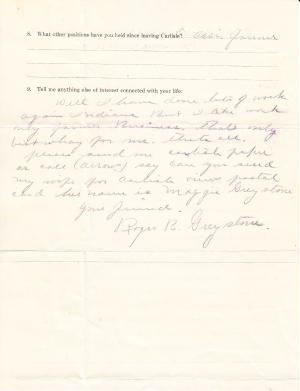 8. What other positions have you held since leaving Carlisle? Farmer
9. Tell me anything else of interest connected with your life:
Well I have done lots of work
again Indians But I like work
only farmer Business. that's only
best way for me. thats all.
please send me carlisle paper
or call (arrow) say can you send
my wife for carlisle view postal
card her name is Maggie Greystone
your friend.
Roger B. Greystone.